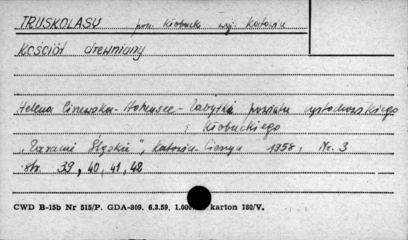 TRUSKOLASY pow. Kłobuck woj. Katowice
Kościół drewniany
Helena - Hohensee - Zabytki powiatu częstochowskiego
i kłobuckiego
„Zaranie Śląskie", Katowice-Cieszyn 1958, Nr. 3
str. 39, 40, 41, 42
CWD B-15b Nr 515/P. GDA-809. 6.3.59. 1.000 karton 180/V.